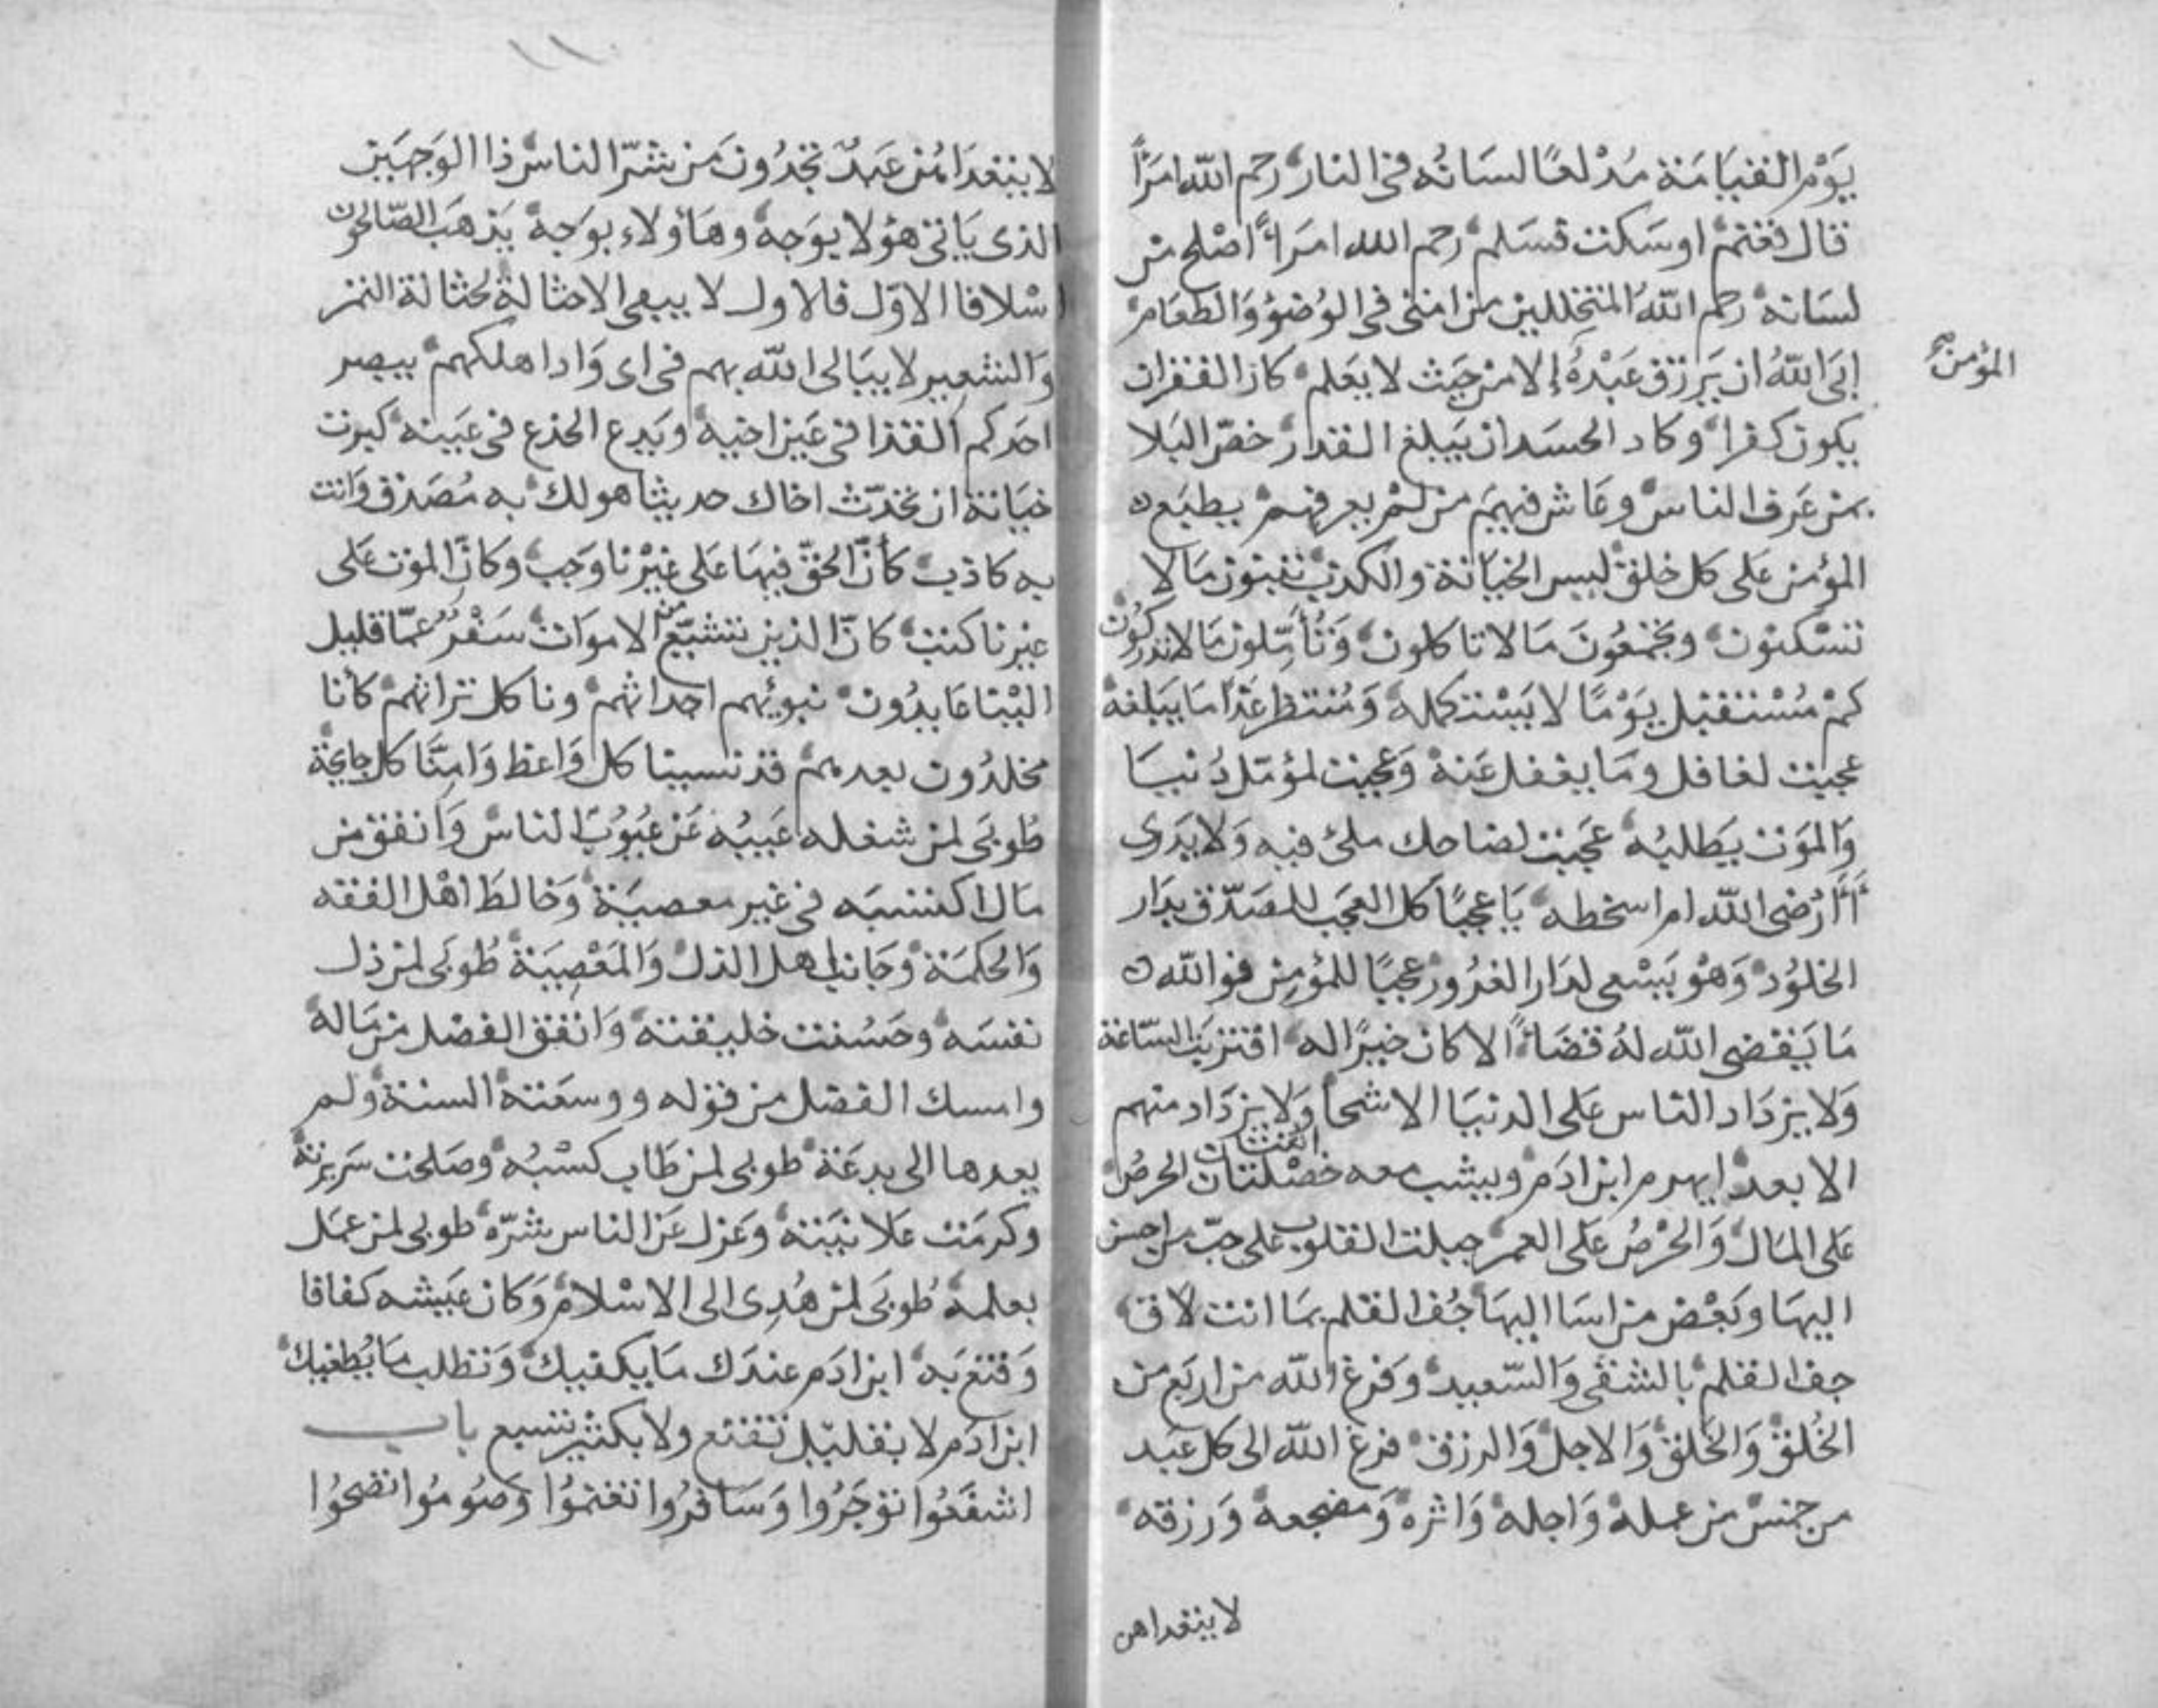 يَوْمَ القيَامَة مُدْلعًا لسَانُه فى النار رحم الله امرَأً
قال فغنم او سَكت فسَلم رحم الله امرَاً اصْلح من
لسَانه رحم اللهُ المتخللين من امتى فى الوُضوُ وَالطعَام
ابَى اللهُ ان يَرزق عَبْدَهُ إلا من حَيث لا يعَلم كاد الفقر ان
المؤمن
يكون كفرا وكاد الحسَد ان يَبلغ القدر خصّ البَلا
بمن عَرف الناس وعَاش فيهم من لم يعرفهم يطبَع
المؤمن عَلى كل خلق ليس الخيَانة والكذب تبنون مَا لا
تسْكنون وتجمعُونَ مَا لا تاكلون وَتُأمّلون مَا لا تدركُون
كمْ مُسْتقبل يَوْمًا لا يَسْتكمله وَمُنتظر غدًا مَا يَبلغه
عجبت لغافل ومَا يغفل عَنه وَعجبت لمؤمّل دُنيَا
وَالموَت يَطلبُه عَجبت لضاحك ملئ فيه وَلا يَدرى
أَأَرْضى الله ام اسخطه يَا عجبًا كل العجَب للمصَدّق بدَار
الخلوُد وَهوُ يَسْعى لدَار الغرُور عجبًا للمؤمن فو الله
مَا يَقضى الله لهُ قضَاءً الا كان خيرًا له اقتربَت السّاعة
وَلا يزدَاد الناس عَلى الدنيَا الا شحا وَلا يزدَاد منهم
الا بعدا يهرم ابن ادَم ويشب معه خصْلتان اثنتان الحرصُ
عَلى المَال وَالحُرْصُ عَلى العمر جبلت القلوب على حبّ من احسن
اليهَا وبَعْض من اسَا اليهَا جُف القلم بمَا انت لاق
جف القلم بالشقى وَالسّعيد وَفرغ الله من اربَع من
الخُلق وَالخَلق وَالاجل وَالرزق فرغ الله الى كل عَبد
من خمس من عمله وَاجله وَاثره وَمضجعه وَرزقه
لا يتعداهن
لا يتعدَاهُن عَبدٌ تجدُون من شرّ الناس ذا الوَجهَين
الذى يَاتى هؤلا بوَجه وهَاؤلاء بوَجه يَذهَب الصّالحون
اسْلافا الاوّل فالاول لا يبقى الا حثالة كحثالة التمر
وَالشعير لا يبَالى الله بهم فى اى وَاد اهلكهم يبصر
احَدكم القذا فى عَين اخيه ويَدع الجذع فى عَينه كبرت
خيَانة ان تحَدّث اخاك حديثا هو لك به مُصَدق وَانت
به كاذب كأنّ الحَقّ فيهَا عَلى غيْرنا وَجب وكانّ الموت عَلى
غيرنا كتب كانّ الذين نشيّع من الاموَات سَفْرٌ عمّا قليل
اليْنا عَايدُون نبوئهم اجداثهم وناكل تراثهم كأنا
مخلدُون بعدهم قد نسينا كل وَاعظ وَامِنَّا كل جايحَة
طُوبَى لمن شغله عَيبُه عَن عُيوُب الناس وَانفق من
مَال اكتسَبَه فى غير معصيَة وَخالط اهْل الفقه
وَالحكمَة وجَانب اهل الذل وَالمَعْصِيَة طُوبَى لمن ذل
نفسَه وحَسُنت خليقته وَانفق الفضل من مَاله
وامسك الفضل من قوله ووسعَته السنة وَلم
يعدها الى بدعَة طوبى لمن طَاب كسْبُه وصَلحت سَريرته
وكرمَت عَلانيَته وَعَزل عَن الناس شرّه طوبى لمن عمَل
بعلمه طُوبَى لمن هُدِى الى الاسْلام وَكان عَيشه كفافا
وَقنع به ابن ادَم عندَك مَا يكفيك وَتطلب مَا يُطغيك
ابن ادَم لا بقليْل تقنع ولا بكثير تشبع باب
اشفَعُوا توجَرُوا وَسَافرُوا تغنموُا وَصوُموُا تصحوُا